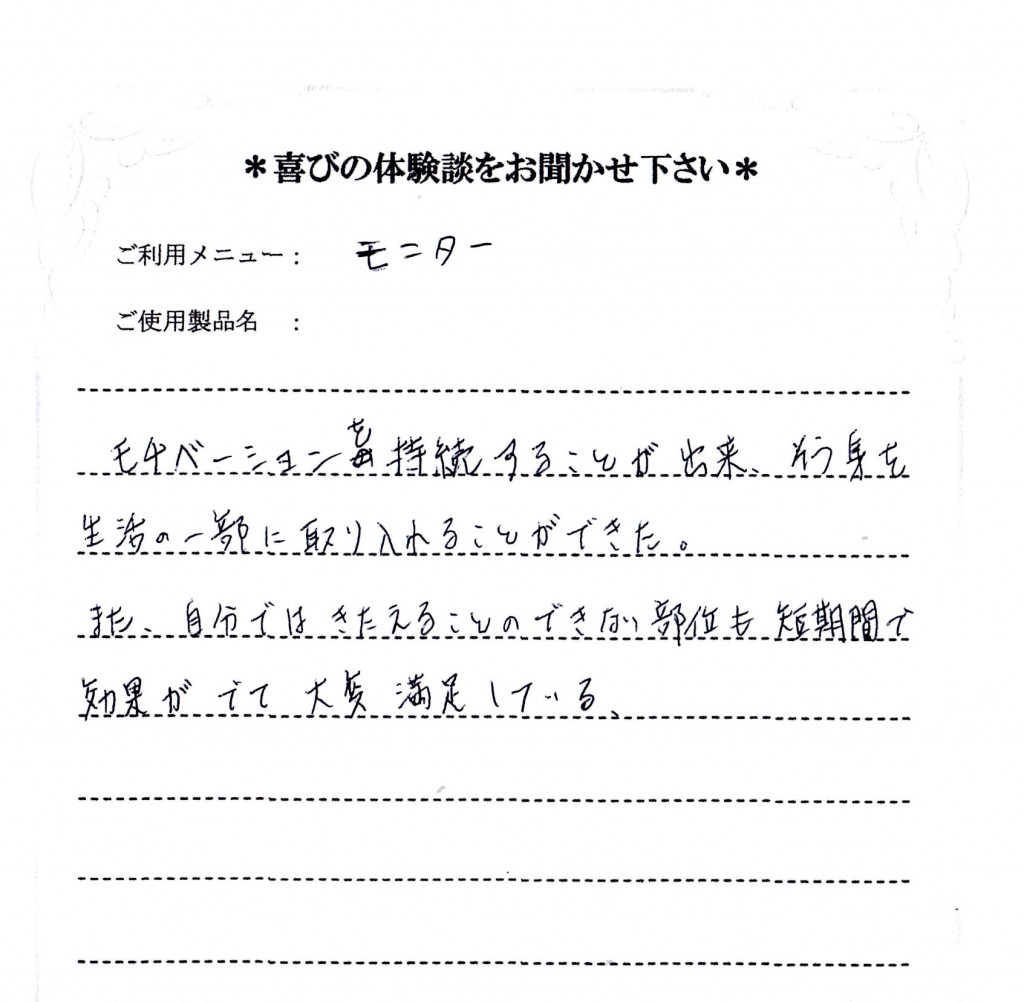 ＊喜びの体験談をお聞かせ下さい＊
ご利用メニュー： モニター
ご使用製品名 ：
モチベーションを持続することが出来、そう身を
生活の一部に取り入れることができた。
また、自分ではきたえることのできない部位も短期間で
効果がでて大変満足している、